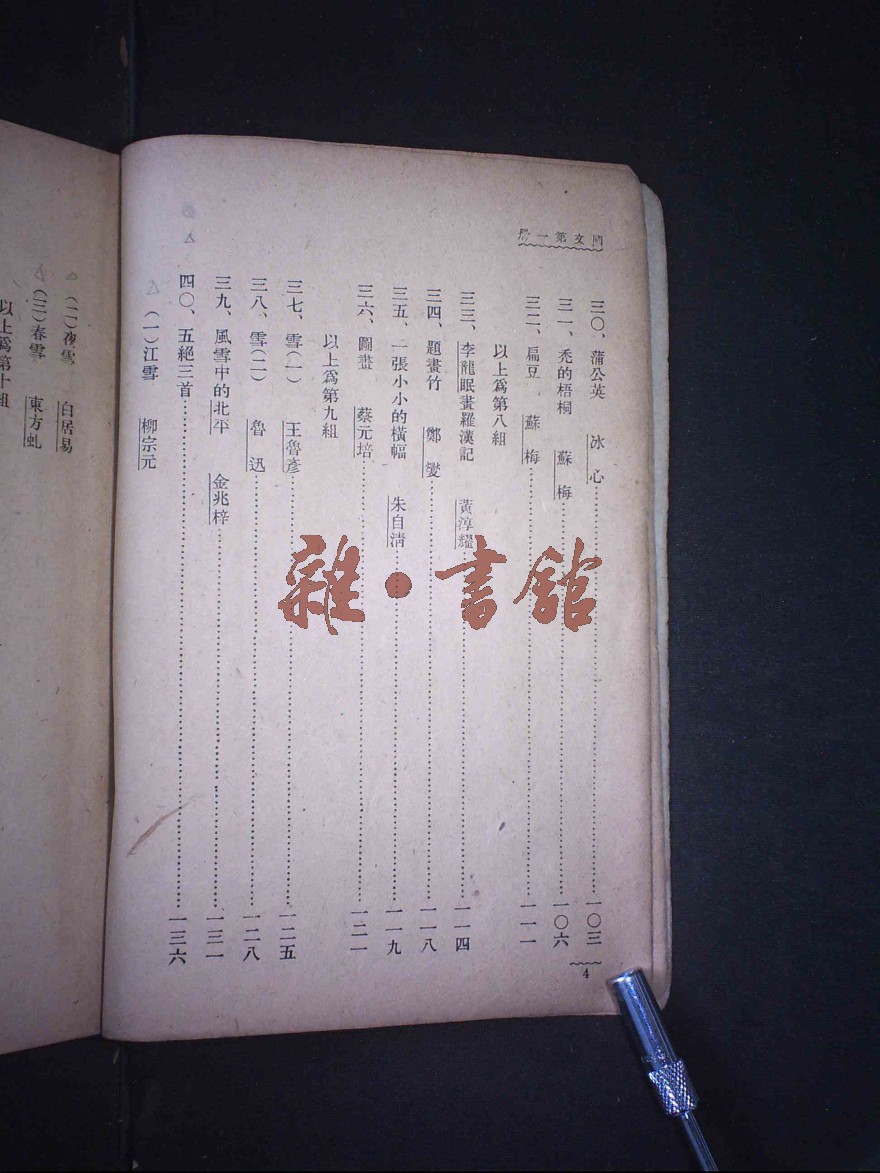 國文第一册
三〇、蒲公英 冰心……一〇三
三一、禿的梧桐 蘇梅……一〇六
三二、扁豆 蘇梅……一一一
以上爲第八組
三三、李龍眠畫羅漢記 黃淳耀……一一四
三四、題畫竹 鄭燮……一一八
三五、一張小小的橫幅 朱自清……一一九
三六、圖畫 蔡元培……一二一
以上爲第九組
三七、雪(一) 王魯彥……一二五
三八、雪(二) 魯迅……一二八
三九、風雪中的北平 金兆梓……一三一
四〇、五絕三首……一三六
△(一)江雪 柳宗元
4
△(二)夜雪 白居易
△(三)春雪 東方虬
以上爲第十組
雜·書館